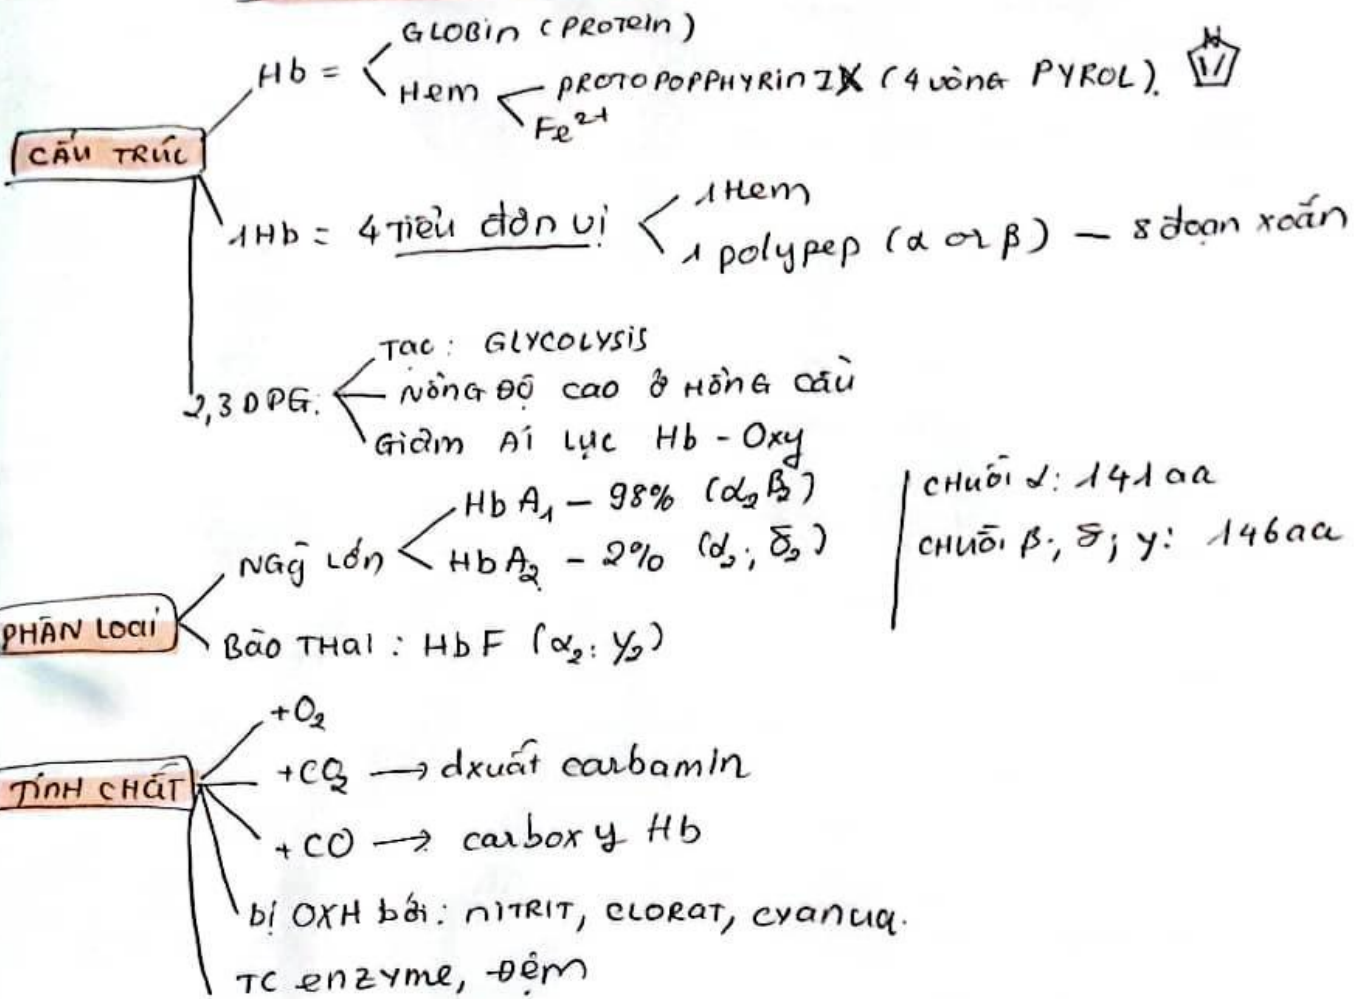 GLOBin (PROTEIn)
Hb =
Hem
PROTOPOPPHYRin IX (4 vòng PYROL).
N
Fe²⁺
CẤU TRÚC
1Hb = 4 Tiểu đơn vị
1 Hem
1 polypep (α or β) – 8 đoạn xoắn
2,3 DPG:
Tạo: GLYCOLYSIS
Nồng độ cao ở Hồng cầu
Giảm Ái lực Hb - Oxy
PHÂN LOẠI
Ng lớn
Hb A₁ – 98% (α₂ β₂)
HbA₂ – 2% (α₂; δ₂)
Bào THAI: HbF (α₂: γ₂)
CHUỖI α: 141 aa
CHUỖI β; δ; γ: 146aa
TÍNH CHẤT
+O₂
+CO₂ → dxuất carbamin
+ CO → carboxy Hb
bị OXH bởi: niTRIT, CLORAT, cyanua.
TC enzyme, Đệm